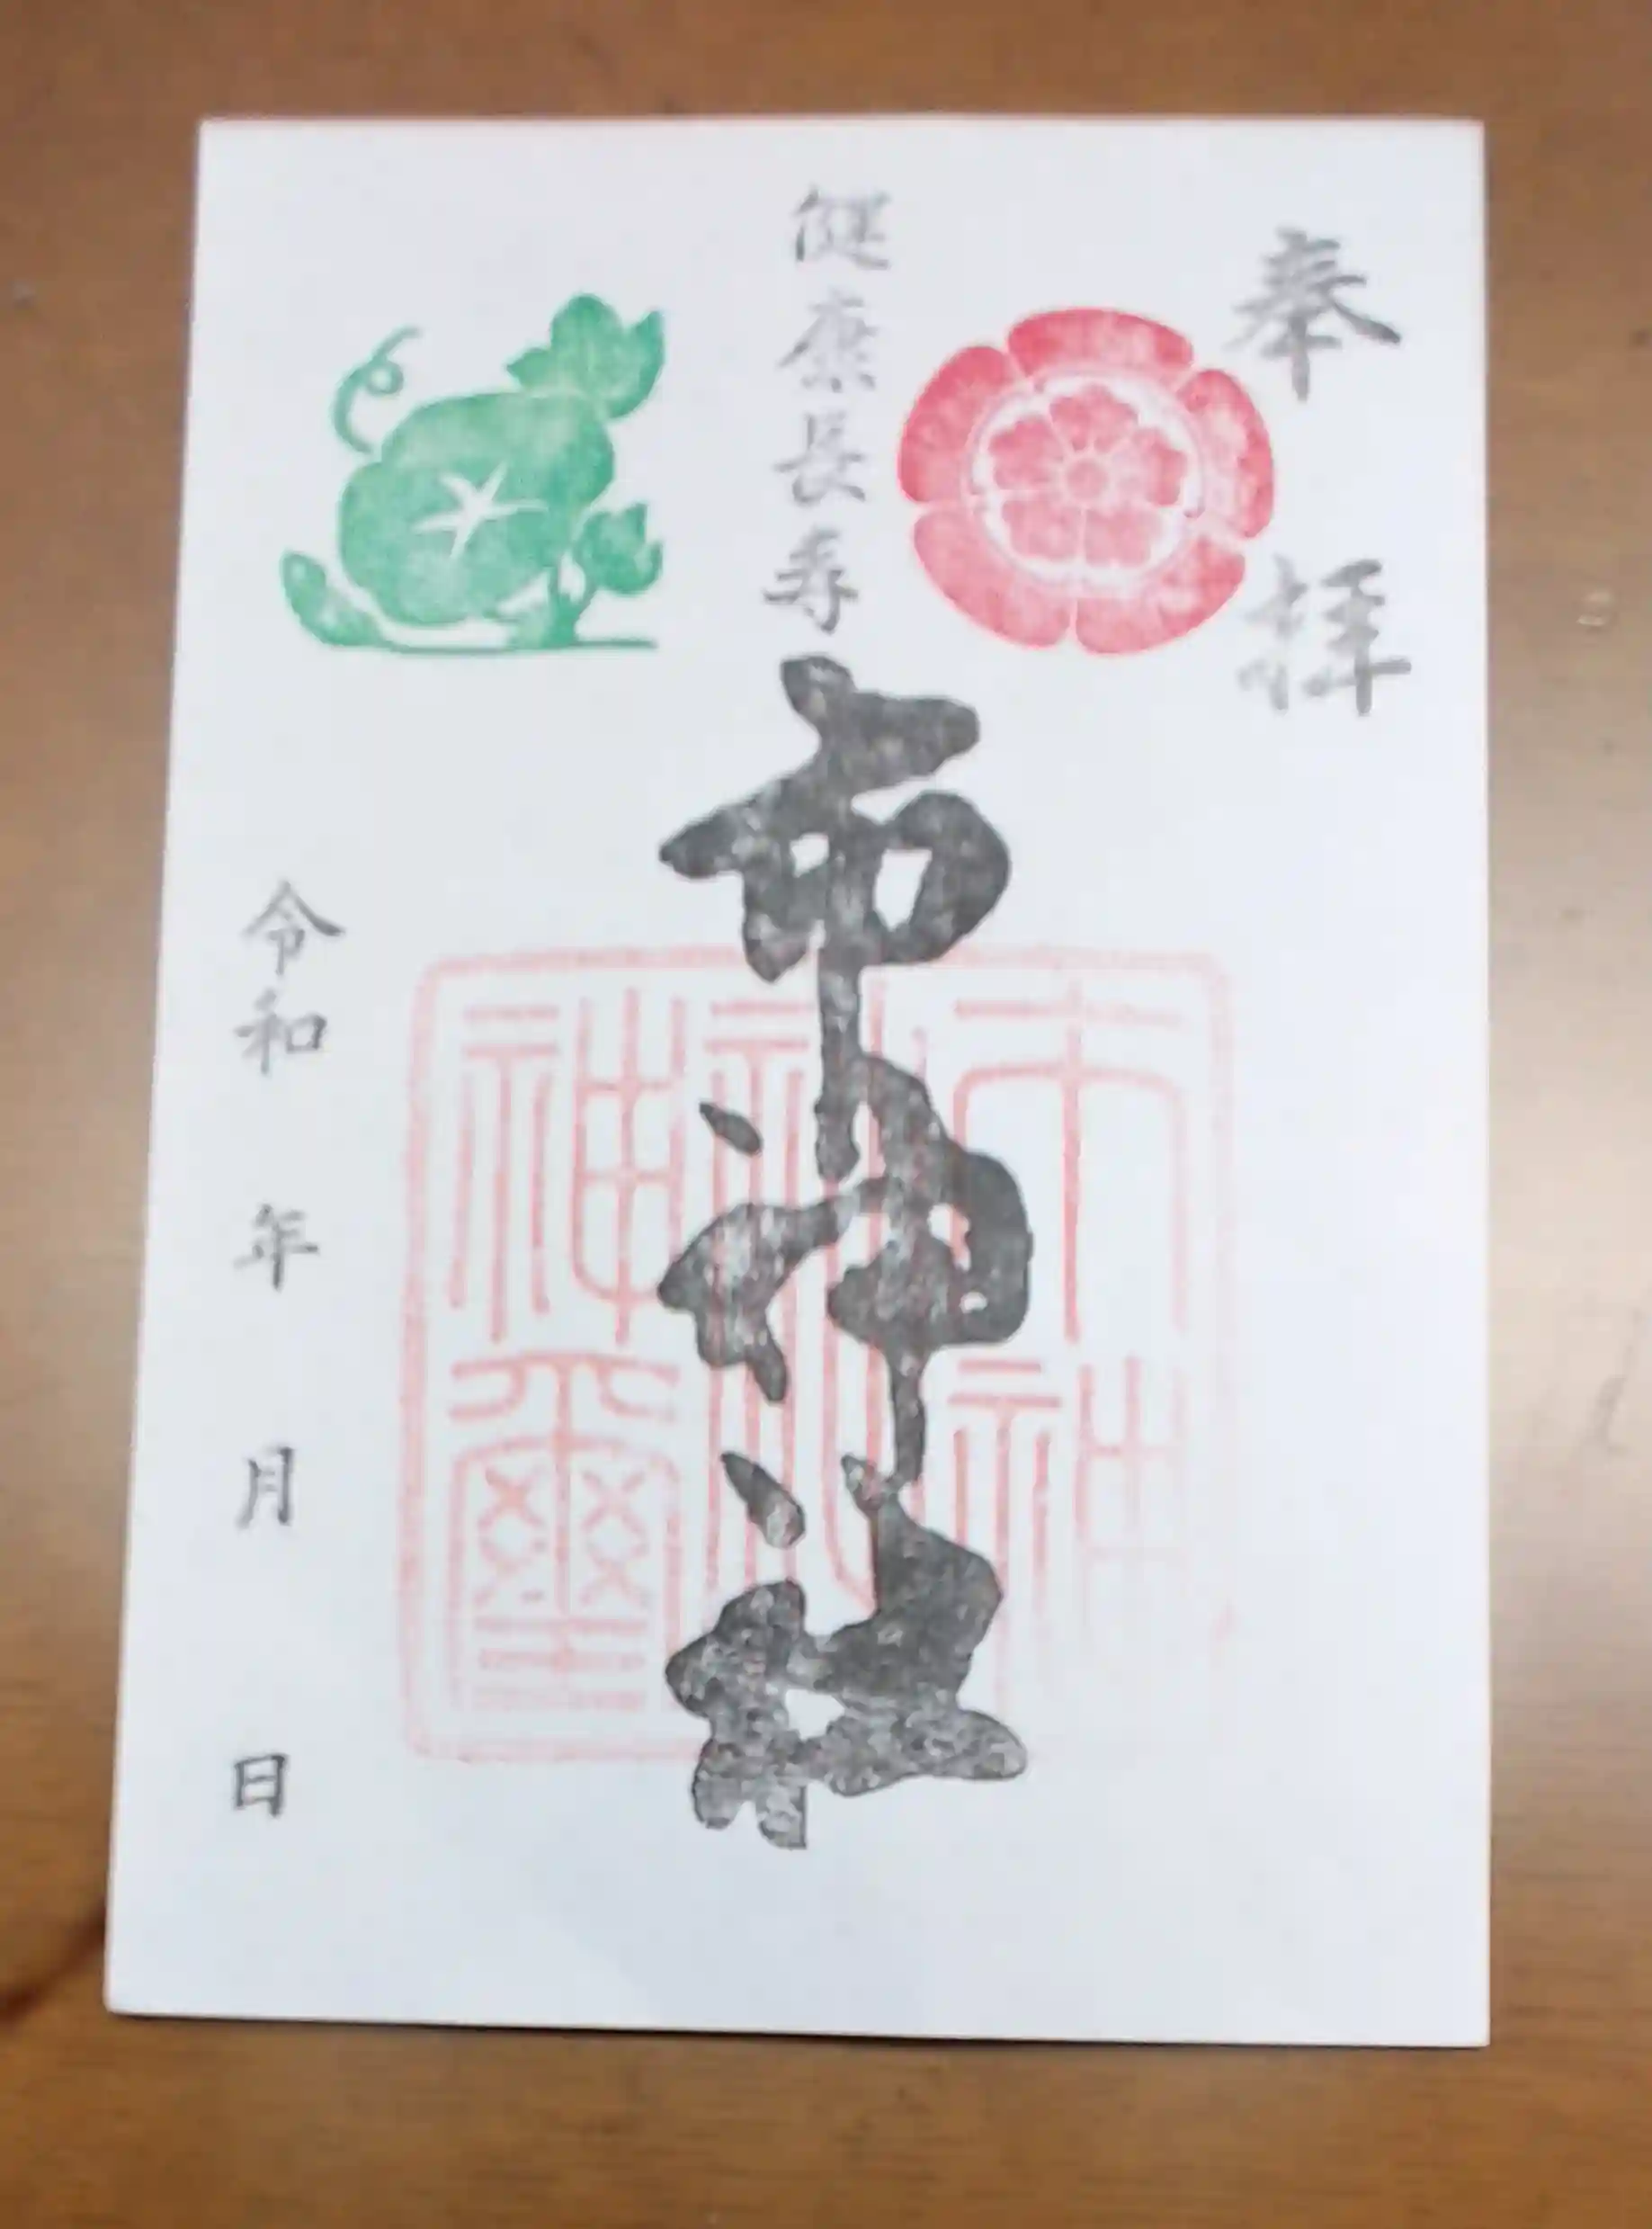 奉拝
健康長寿
市神神社
市神神社神璽
令和 年 月 日